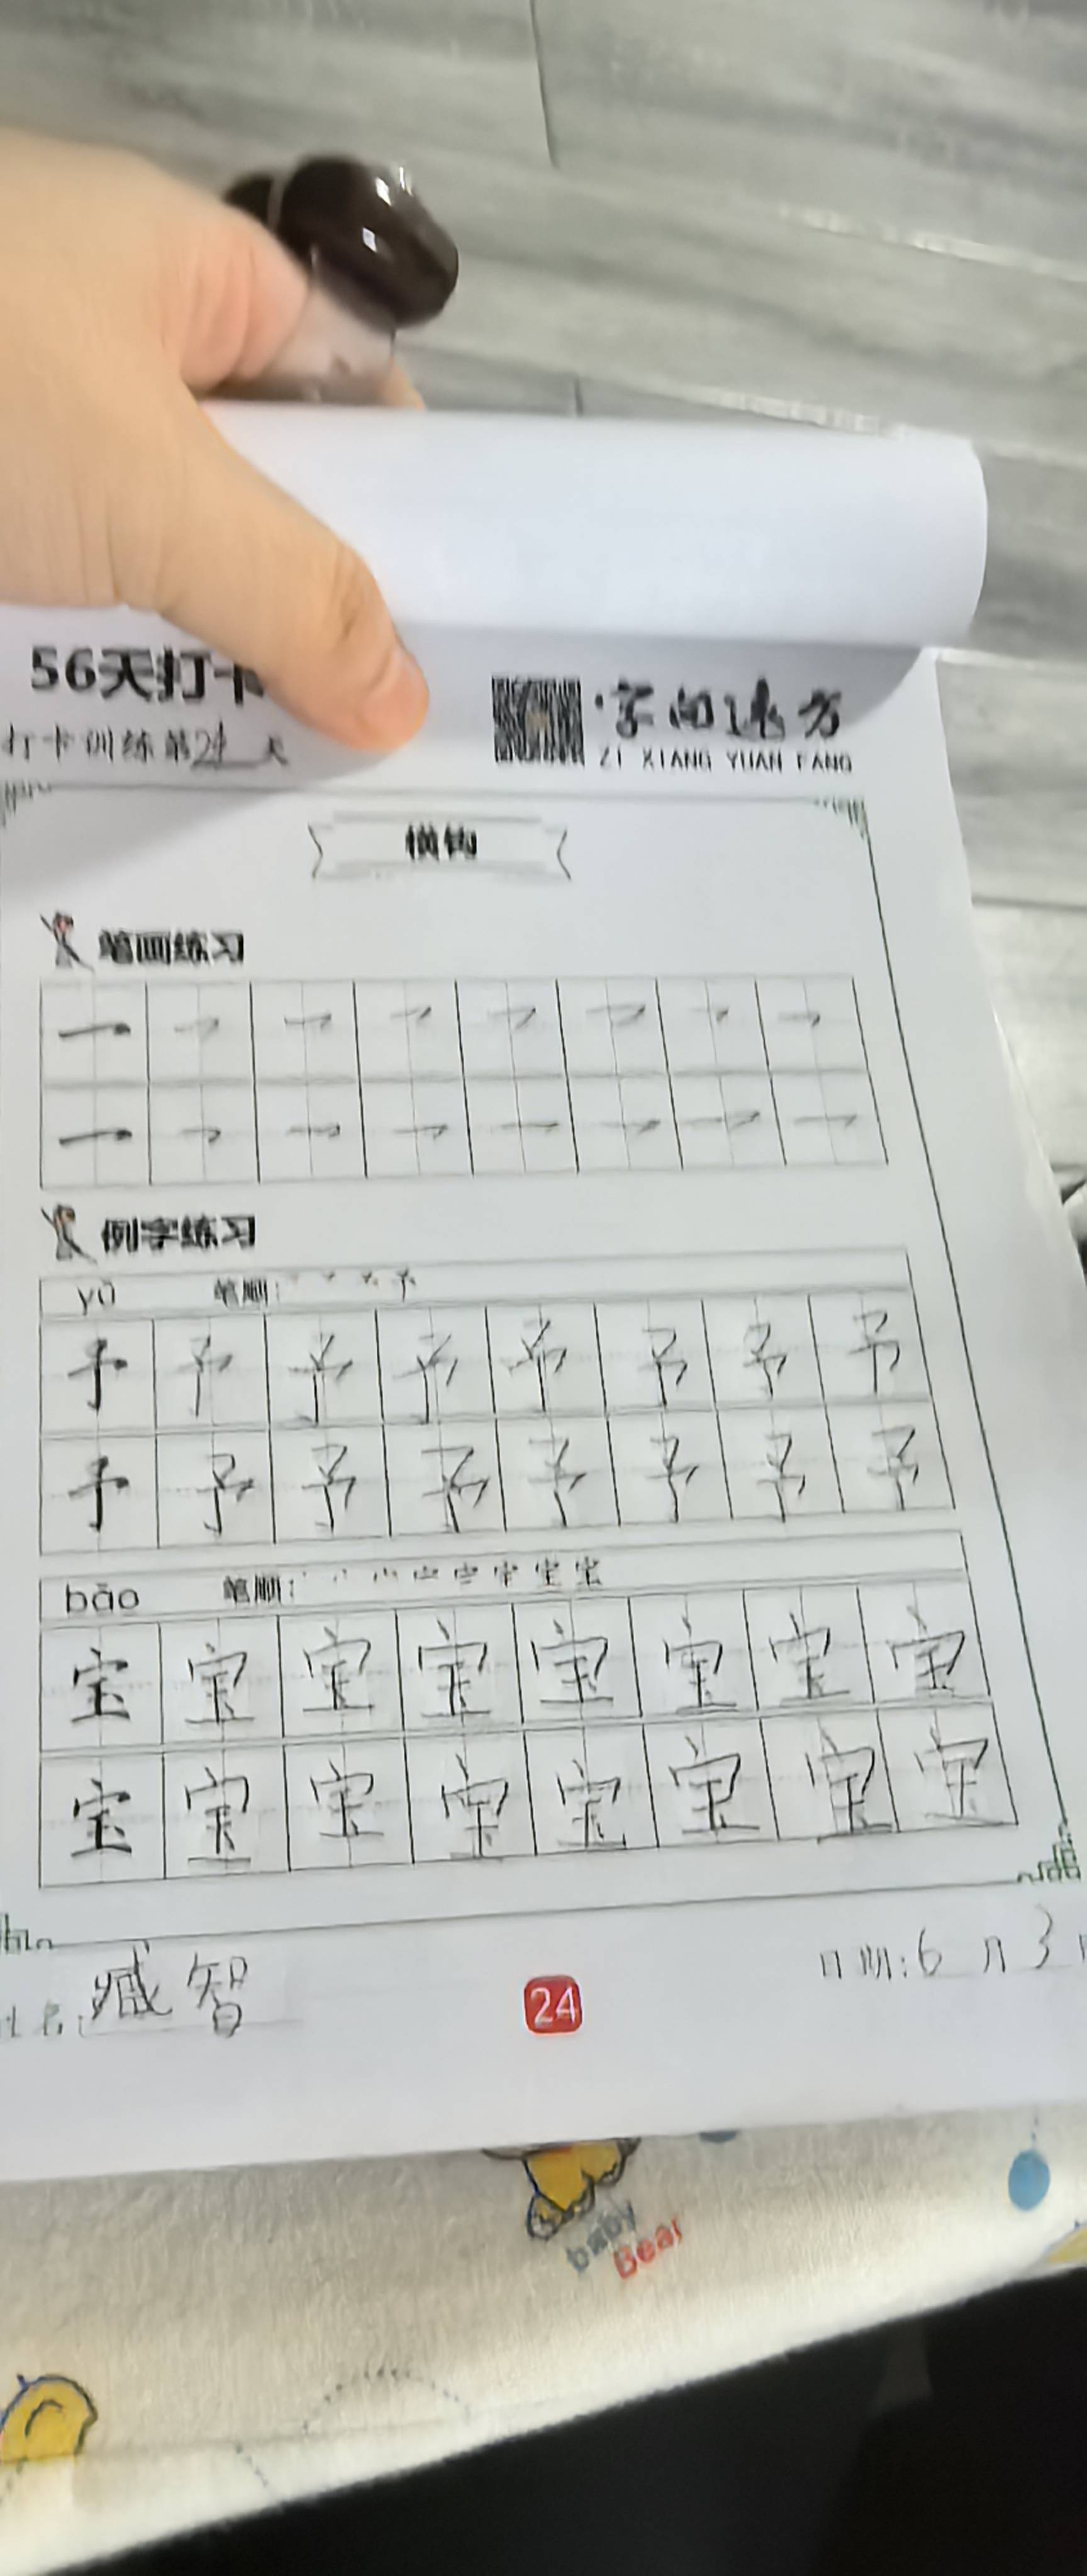 56天打卡
字向远方
打卡训练第24天
ZI XIANG YUAN FANG
横钩
笔画练习
例字练习
yǔ 笔顺:
予 予 予 予 予 予 予 予
予 予 予 予 予 予 予 予
bǎo 笔顺:
宝 宝 宝 宝 宝 宝 宝 宝
宝 宝 宝 宝 宝 宝 宝 宝
姓名: 臧智
24
日期: 6月3
baby
Bear